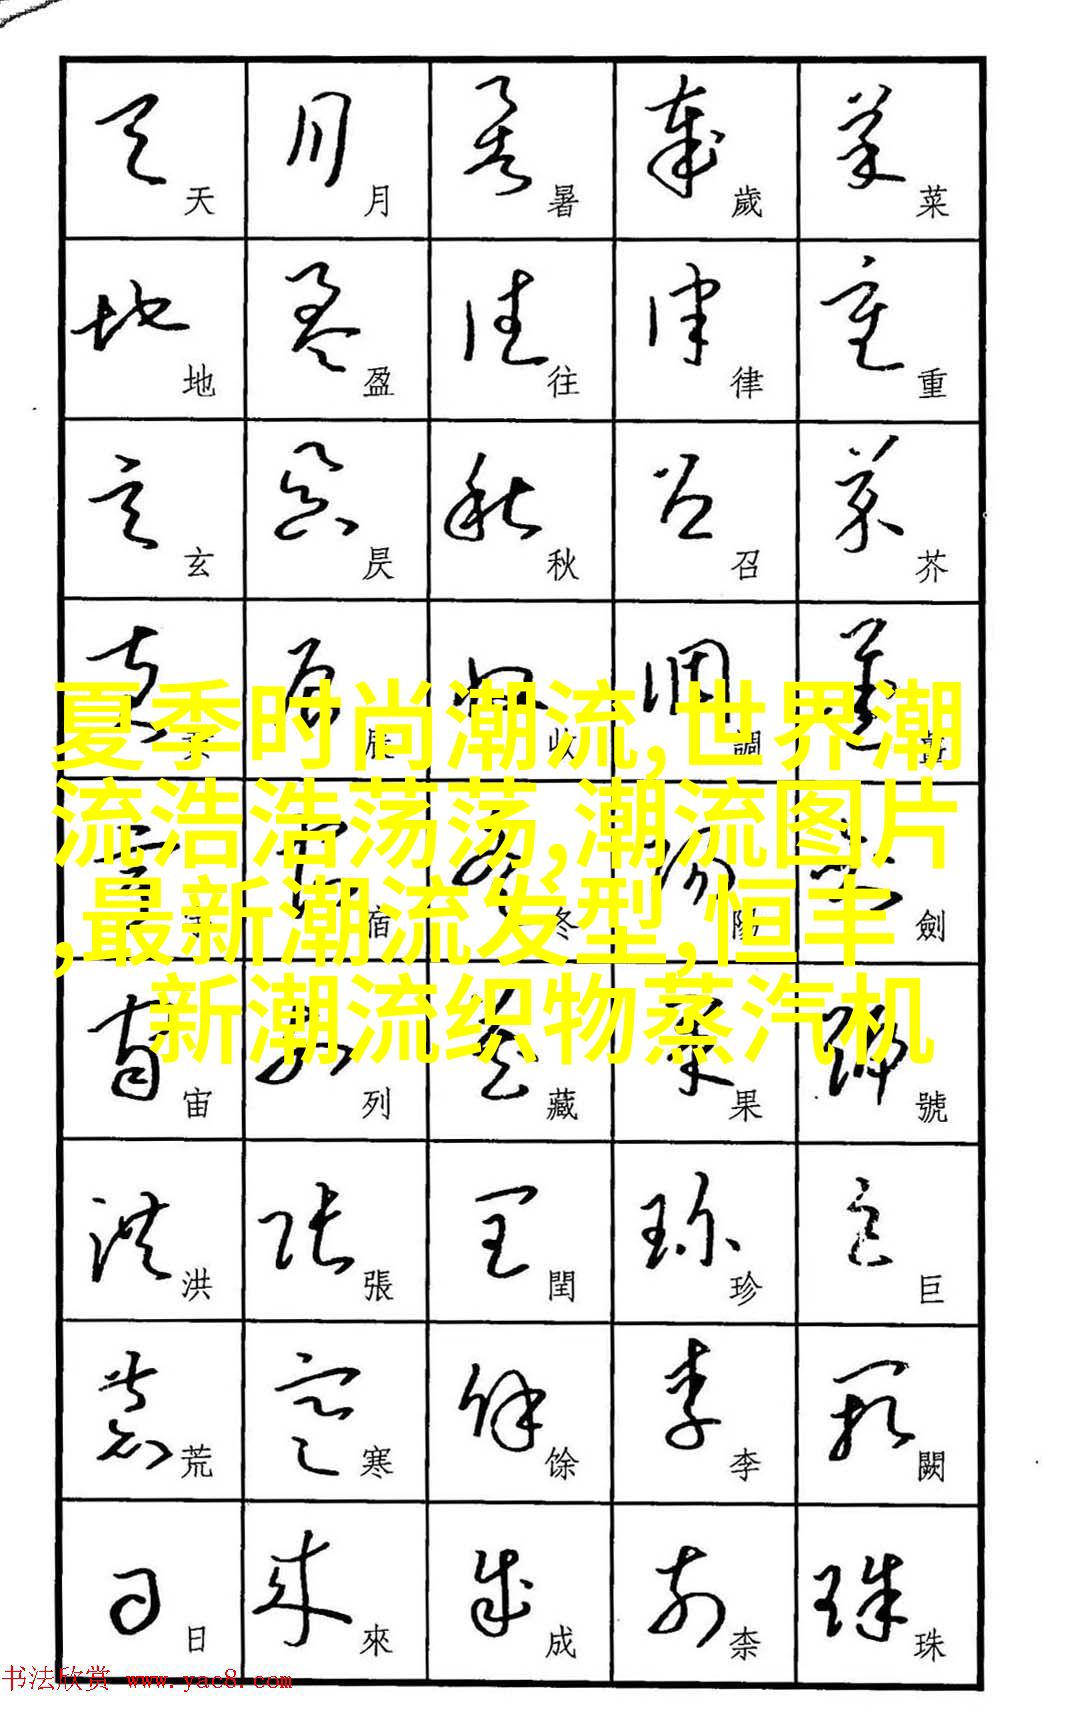 天 月 暑 歲 菜
地 盈 往 律 重
玄 昃 秋 召 芥
辰 收 調
夏季时尚潮流,世界潮
流浩浩荡荡,潮流图片
宿 冬 陽 劍
,最新潮流发型,恒丰
新潮流织物蒸汽机
宙 列 藏 果 號
洪 張 閏 珍 巨
荒 寒 馀 李 闕
日 來 成 柰 珠
书法欣赏 www.yac8.com